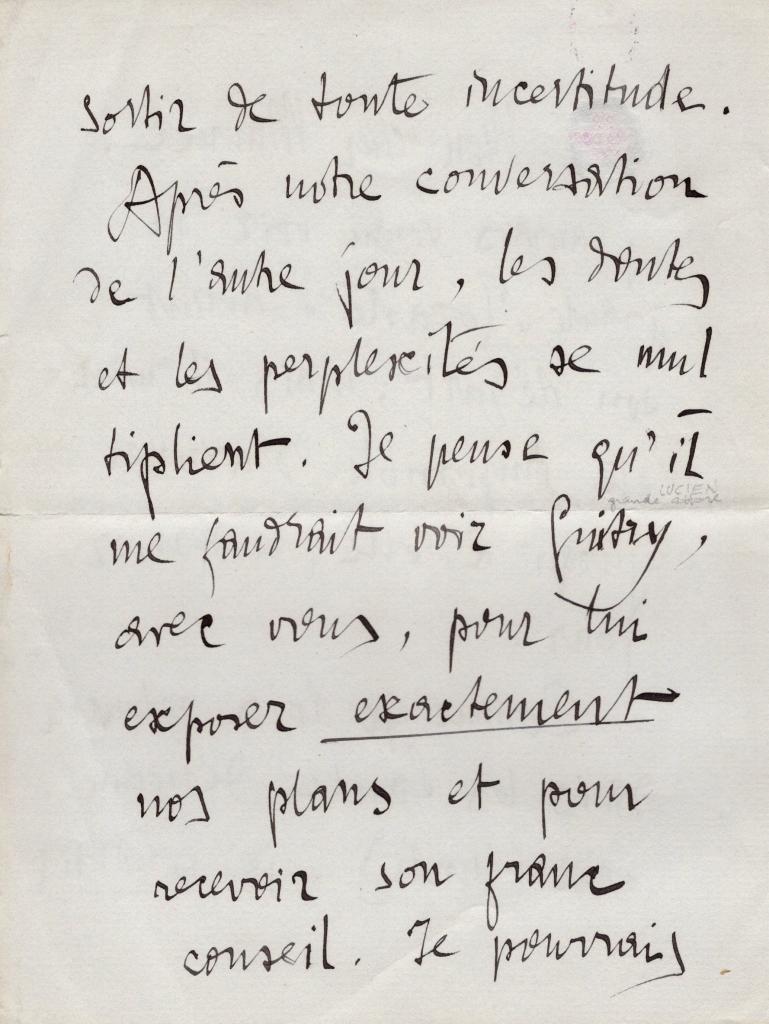 sortir de toute incertitude.
Après notre conversation
de l'autre jour, les doutes
et les perplexités se mul
tiplient. Je pense qu'il
LUCIEN
grande
me faudrait voir Guitry,
avec vous, pour lui
exposer exactement
nos plans et pour
recevoir son franc
conseil. Je pourrais